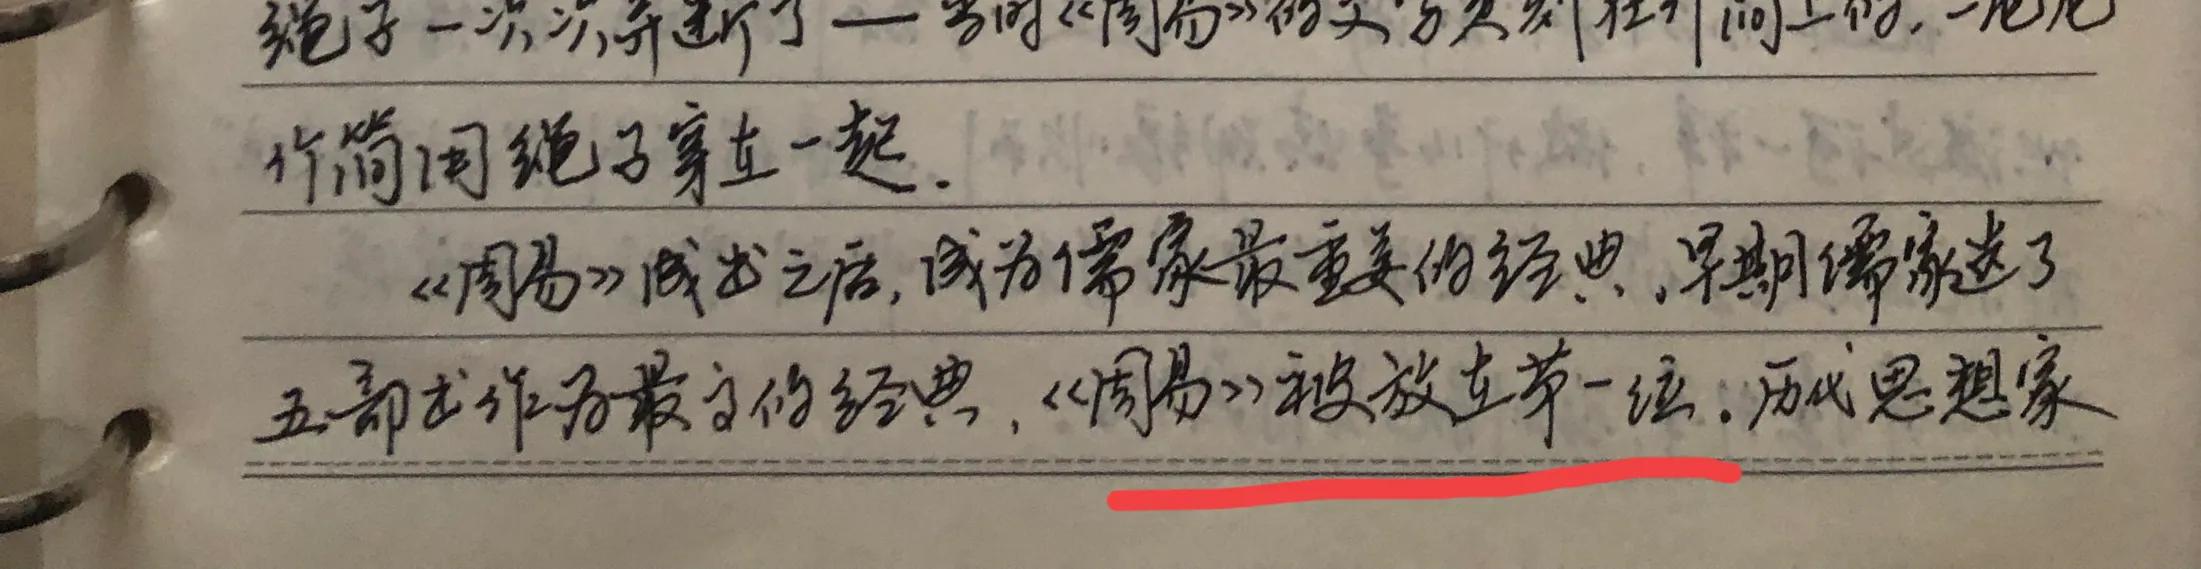 绳子一次次弄断了——当时《周易》的文字是刻在竹简上的,一片片
竹简用绳子穿在一起.
《周易》成书之后,成为儒家最重要的经典,早期儒家选了
五部书作为最高的经典,《周易》被放在第一位.历代思想家